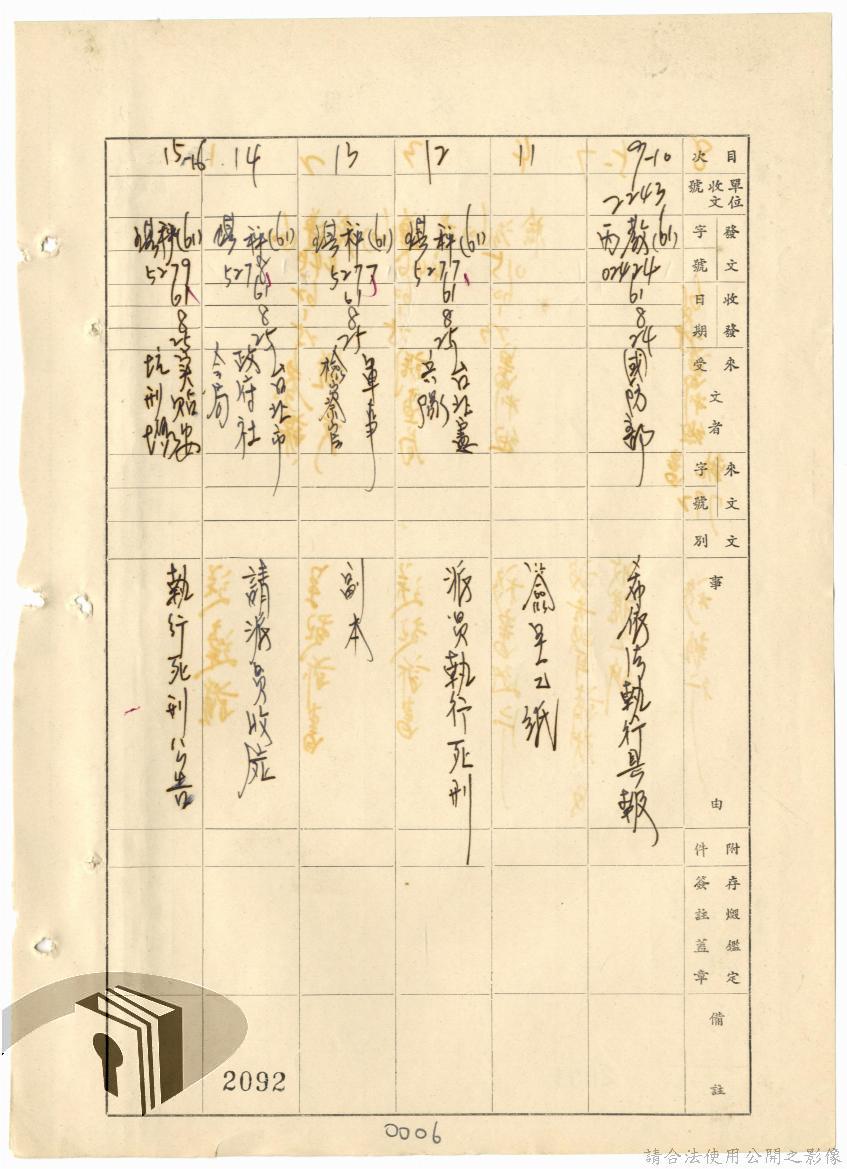 目次
單位收文號
發文字號
收發日期
來文受文者
來文字號
文別
事由
附件
存燬鑑定簽註蓋章
備註
9-10
2243
(61)
02424
61
8
24
國防部
希依法執行具報
11
簽呈乙紙
12
(61)
5277
61
8
25
台北憲兵隊
派員執行死刑
13
(61)
5277
61
8
25
軍事檢察官
副本
14
(61)
61
8
25
台北市政府社會局
請派員收屍
15-16
(61)
5279
61
8
25
安坑刑場
執行死刑公告
2092
0006
請合法使用公開之影像